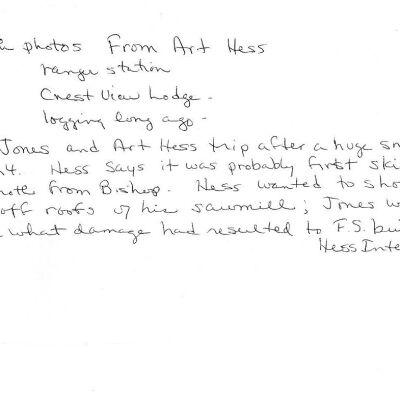 photos From Art Hess
range station
Crest View Lodge -
logging long ago -
Jones and Art Hess trip after a huge
Hess says it was probably first
from Bishop. Hess wanted to
off roofs of his sawmill; Jones
what damage had resulted to F.S.
Hess